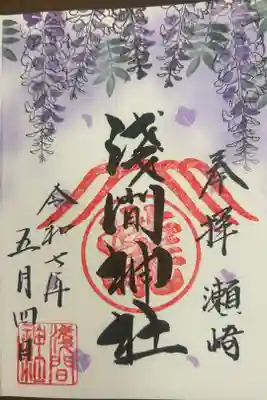 奉拝 瀬崎
淺間神社
令和七年
五月四日
淺間
神社